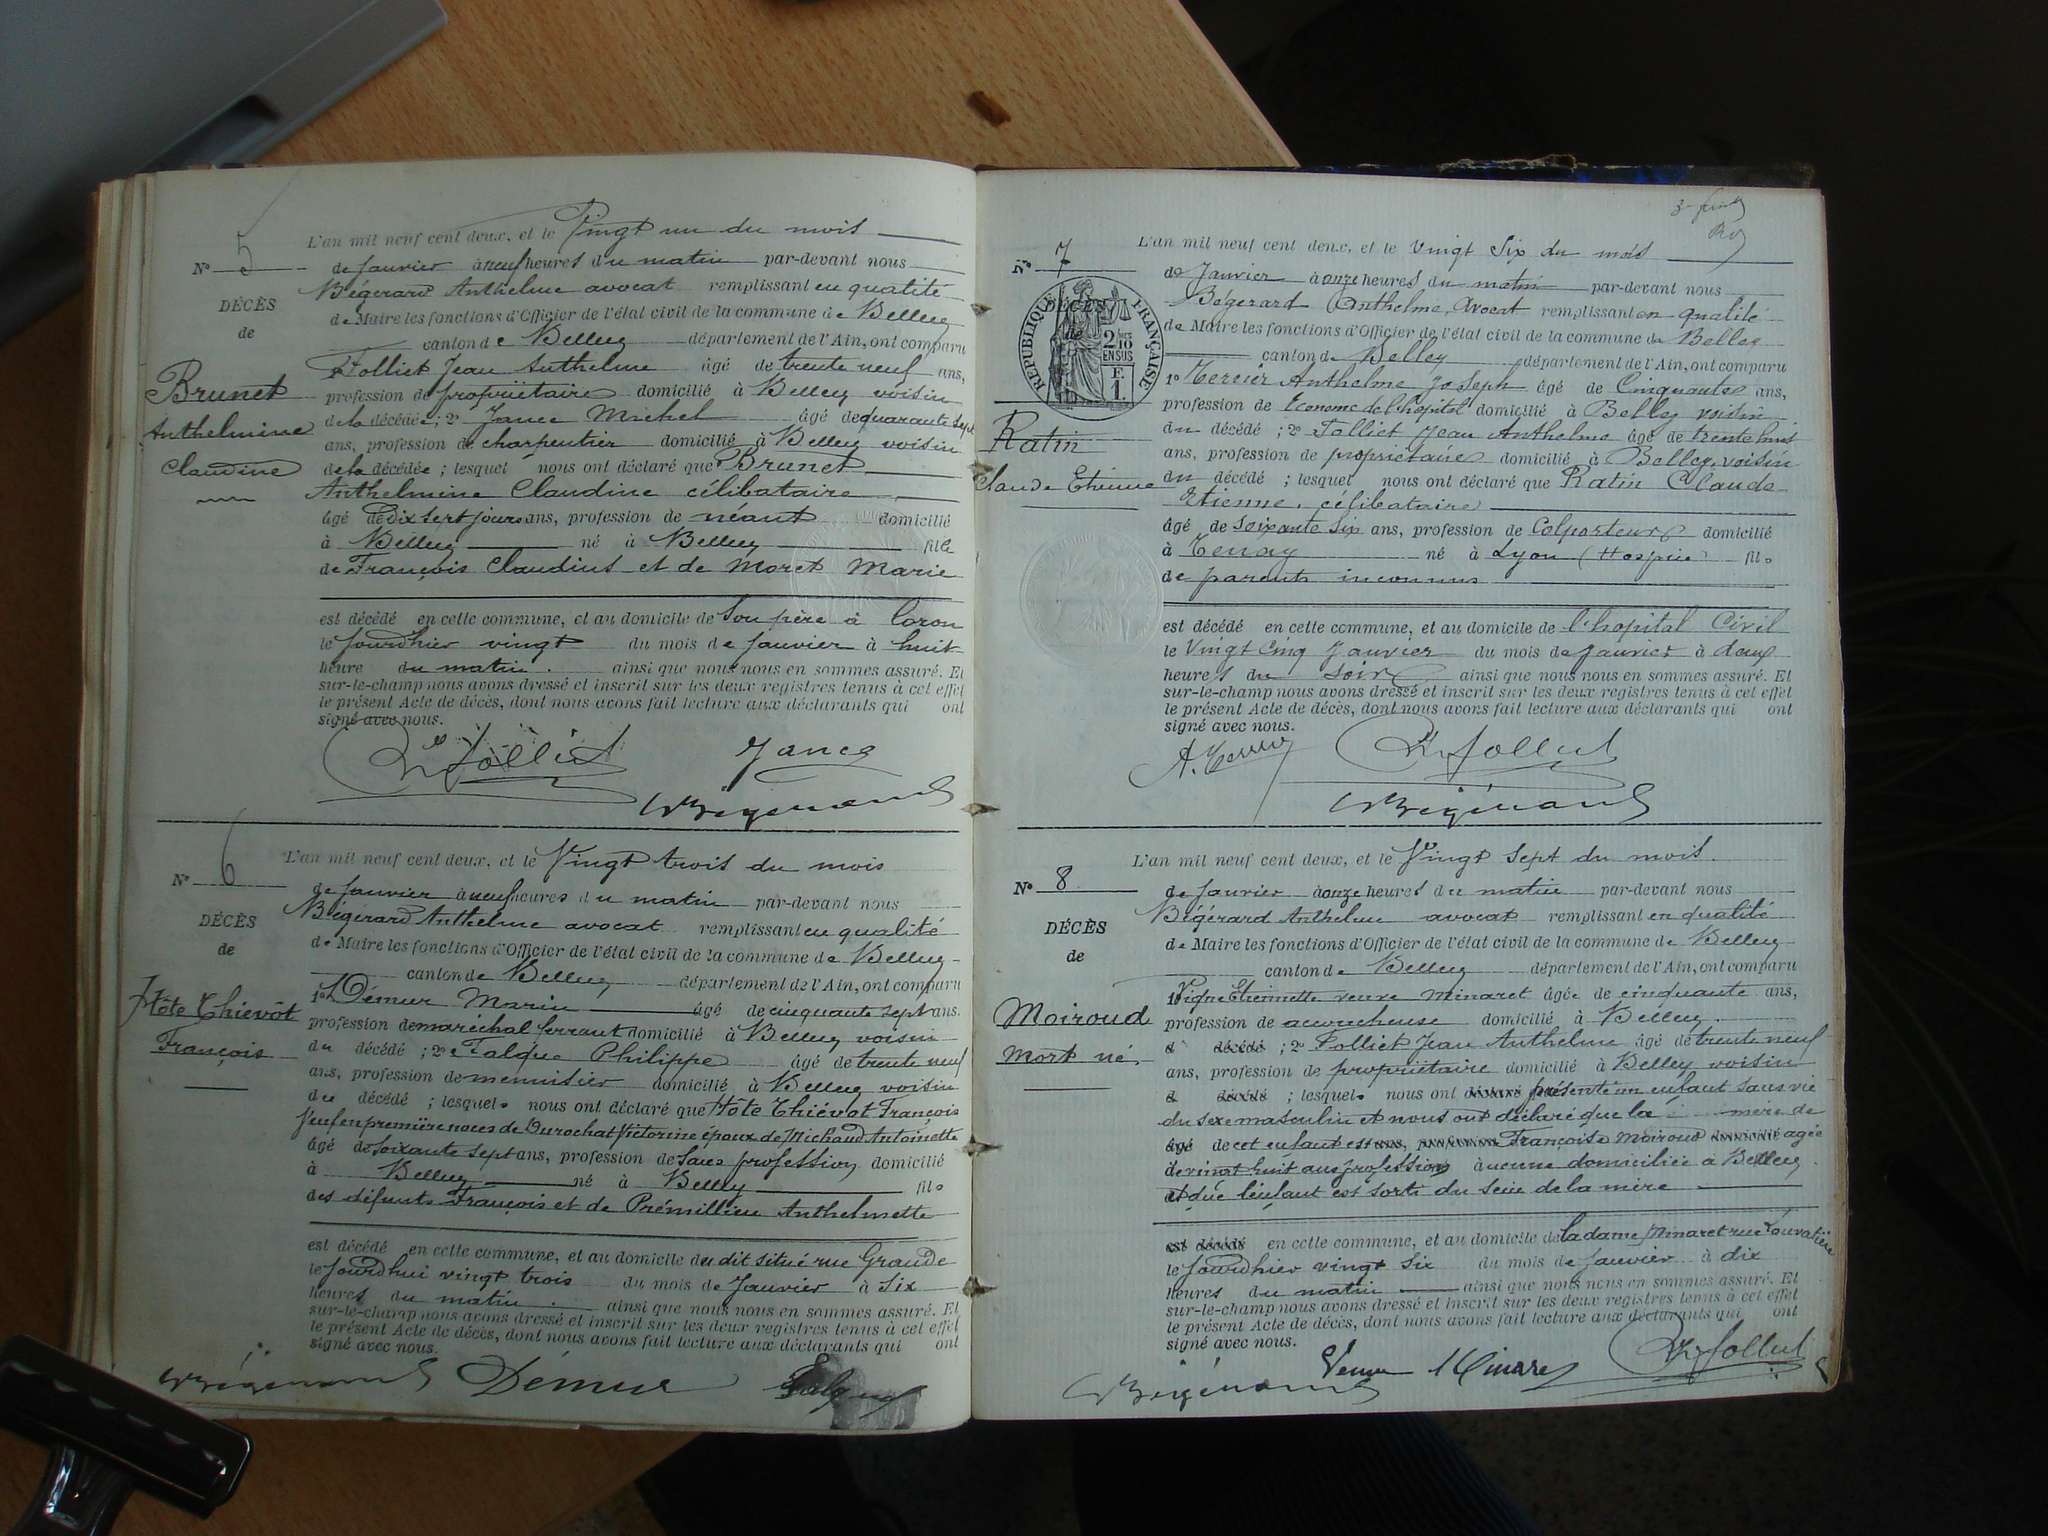 N° 5
DÉCÈS
de
Brunet
Anthelmine
Claudine
L'an mil neuf cent deux, et le Vingt un du mois
de Janvier à neuf heures du matin par-devant nous
Bégerard Anthelme avocat remplissant en qualité
de Maire les fonctions d'Officier de l'état civil de la commune de Belley
canton de Belley département de l'Ain, ont comparu
Folliet Jean Anthelme âgé de trente neuf ans,
profession de propriétaire domicilié à Belley voisin
de la décédée; 2° Jance Michel âgé de quarante sept
ans, profession de charpentier domicilié à Belley voisin
de la décédée; lesquel nous ont déclaré que Brunet
Anthelmine Claudine célibataire
âgé de Dix sept jours ans, profession de néant domicilié
à Belley né à Belley fille
de François Claudius et de Moret Marie
est décédé en cette commune, et au domicile de Son père à Coron
le jourdhier vingt du mois de Janvier à huit
heure du matin. ainsi que nous nous en sommes assuré. Et
sur-le-champ nous avons dressé et inscrit sur les deux registres tenus à cet effet
le présent Acte de décès, dont nous avons fait lecture aux déclarants qui ont
signé avec nous.
Folliet Jance
Bégerard
N° 6
DÉCÈS
de
Hôte Thiévôt
François
L'an mil neuf cent deux, et le Vingt trois du mois
de Janvier à neuf heures du matin par-devant nous
Bégérard Anthelme avocat remplissant en qualité
de Maire les fonctions d'Officier de l'état civil de la commune de Belley
canton de Belley département de l'Ain, ont comparu
1° Démur Marin âgé de cinquante sept ans.
profession de maréchal ferrant domicilié à Belley voisin
du décédé; 2° Falque Philippe âgé de trente neuf
ans, profession de menuisier domicilié à Belley voisin
du décédé; lesquels nous ont déclaré que Hôte Thiévot François
Veuf en première noces de Durochat Victorine époux de Michaud Antoinette
âgé de soixante sept ans, profession de Sans profession domicilié
à Belley né à Belley fils
des défunts François et de Prémillieu Anthelmette
est décédé en cette commune, et au domicile du dit situé rue Grande
le jourdhui vingt trois du mois de Janvier à Six
heures du matin. ainsi que nous nous en sommes assuré. Et
sur-le-champ nous avons dressé et inscrit sur les deux registres tenus à cet effet
le présent Acte de décès, dont nous avons fait lecture aux déclarants qui ont
signé avec nous.
Bégerard Démur Falque
N° 7
RÉPUBLIQUE FRANÇAISE
DÉCÈS
de
2/10 EN SUS
F.
1.
Ratin
Claude Etienne
L'an mil neuf cent deux, et le vingt Six du mois
de Janvier à onze heures du matin par-devant nous
Bégerard Anthelme, Avocat remplissant en qualité
de Maire les fonctions d'Officier de l'état civil de la commune de Belley
canton de Belley département de l'Ain, ont comparu
1° Tercier Anthelme Joseph âgé de Cinquante ans,
profession de Econome de l'hôpital domicilié à Belley voisin
du décédé; 2° Folliet Jean Anthelme âgé de trente huit
ans, profession de propriétaire domicilié à Belley, voisin
du décédé; lesquel nous ont déclaré que Ratin Claude
Etienne, célibataire
âgé de soixante six ans, profession de Colporteur domicilié
à Tenay né à Lyon (Hospice) fils
de parents inconnus
est décédé en cette commune, et au domicile de l'hopital Civil
le Vingt Cinq Janvier du mois de Janvier à deux
heures du Soir ainsi que nous nous en sommes assuré. Et
sur-le-champ nous avons dressé et inscrit sur les deux registres tenus à cet effet
le présent Acte de décès, dont nous avons fait lecture aux déclarants qui ont
signé avec nous.
Folliet
Bégerard
N° 8
DÉCÈS
de
Moiroud
Mort né
L'an mil neuf cent deux, et le Vingt sept du mois.
de Janvier à onze heures du matin par-devant nous
Bégérard Anthelme avocat remplissant en qualité
de Maire les fonctions d'Officier de l'état civil de la commune de Belley
canton de Belley département de l'Ain, ont comparu
1° Pigne Etiennette veuve Minaret âgée de cinquante ans,
profession de accoucheuse domicilié à Belley.
d décédé; 2° Folliet Jean Anthelme âgé de trente neuf
ans, profession de propriétaire domicilié à Belley voisin
d décédé; lesquels nous ont déclaré présenté un enfant sans vie
du sexe masculin et nous ont déclaré que la mère de
âgé de cet enfant est ans, profession Françoise Moiroud domicilié agée
de vingt huit ans profession aucune domiciliée à Belley
et que l'enfant est sorti du sein de la mère
est décédé en cette commune, et au domicile de la dame Minaret rue Louvatière
le jourdhier vingt six du mois de Janvier à dix
heures du matin ainsi que nous nous en sommes assuré. Et
sur-le-champ nous avons dressé et inscrit sur les deux registres tenus à cet effet
le présent Acte de décès, dont nous avons fait lecture aux déclarants qui ont
signé avec nous.
Folliet
Bégerard Veuve Minaret